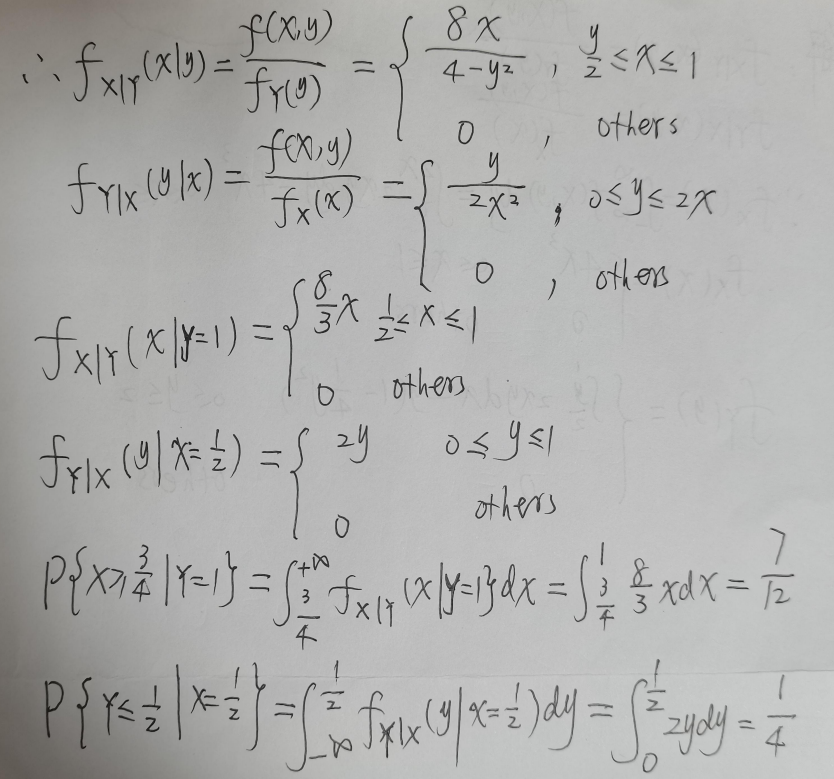 ∴ f_{X|Y}(x|y) = f(x,y)/f_Y(y) = { 8x/(4-y²) , y/2 ≤ x ≤ 1
0 , others
f_{Y|X}(y|x) = f(x,y)/f_X(x) = { y/(2x²) , 0 ≤ y ≤ 2x
0 , others
f_{X|Y}(x|y=1) = { 8/3 x 1/2 ≤ x ≤ 1
0 others
f_{Y|X}(y|x=1/2) = { 2y 0 ≤ y ≤ 1
0 others
P{X ≥ 3/4 | Y=1} = ∫_{3/4}^{+∞} f_{X|Y}(x|y=1}dx = ∫_{3/4}^{1} 8/3 xdx = 7/12
P{Y ≤ 1/2 | X=1/2} = ∫_{-∞}^{1/2} f_{Y|X}(y|x=1/2)dy = ∫_{0}^{1/2} 2ydy = 1/4